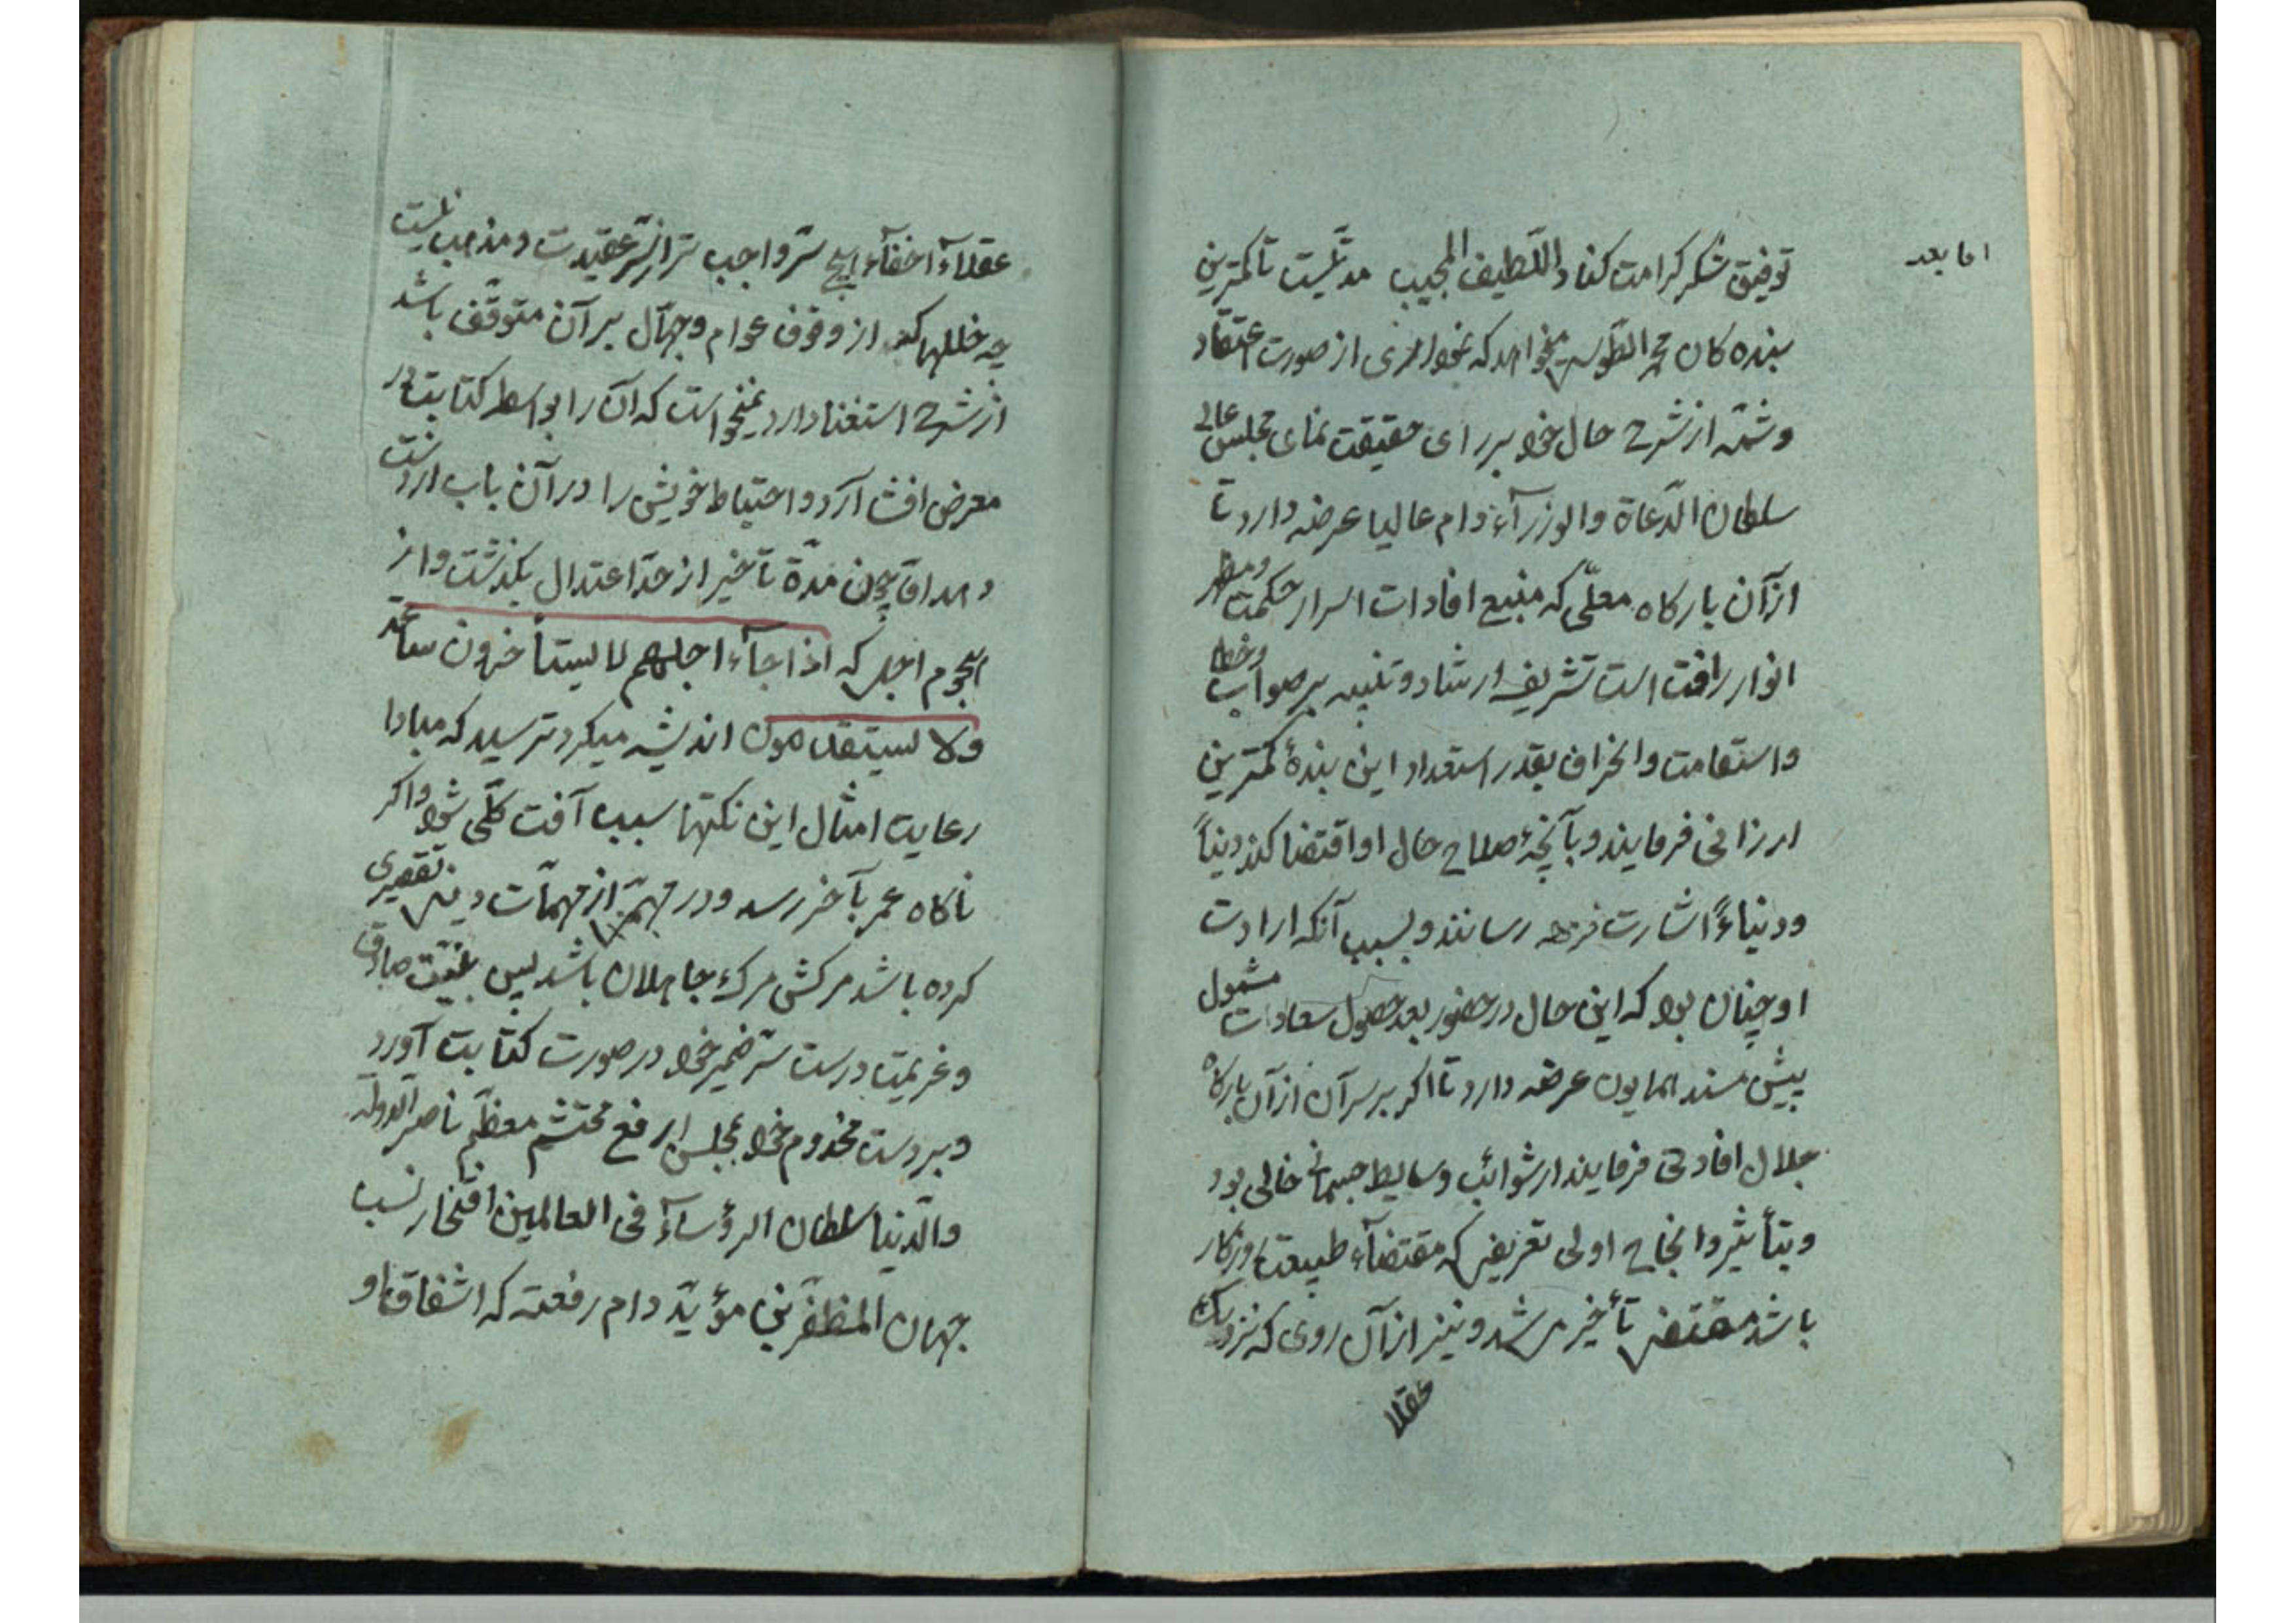 اما بعد
توفیق شکر کرامت کناد و اللّطیف المجیب مدتیست تا کمترین
بنده کان محمد الطّوسی میخواهد که نموداری از صورت اعتقاد
و شمّه از شرح حال خود بر رای حقیقت نمای مجلس عالی
سلطان الدّعاة والوزرآء دام عالیا عرضه دارد تا
از آن بارکاه معلّی که منبع افادات اسرار حکمت و مظهر
انوار رافت است تشریف ارشاد و تنبیه بر صواب و خطا
و استقامت و انحراف بقدر استعداد این بندهٔ کمترین
ارزانی فرمایند و بآنچهٔ صلاح حال او اقتضا کند دیناً
و دنیاءً اشارت رسانند و بسبب آنکه ارادت
او چنان بود که این حال در حضور بعد حصول سعادات مشمول
پیش مسند همایون عرضه دارد تا اکر بر سر آن از آن بارکاه
جلال افادتی فرمایند از شوائب وسایط جسمانی خالی بود
و بتأثیر و انجاح اولی تعریفی که مقتضآء طبیعت روزکار
باشد مقتضی تأخیر می شد و نیز از آن روی که نزدیک
عقلا
عقلآء اخفآء هیچ سرّ واجب تر از سرّ عقیدت و مذهب نیست
چه خللها که از وقوف عوام و جهّال بر آن متوقّف باشد
از شرح استغنا دارد نمیخواست که آن را بواسطه کتابت در
معرض افشا آرد و احتیاط خویش را در آن باب از دست
دهد اما چون مدّة تأخیر از حدّ اعتدال بکذشت و از
هجوم اجل که اذا جآء اجلهم لا یستأخرون ساعة
ولا یستقدمون اندیشه میکرد ترسید که مبادا
رعایت امثال این نکتها سبب آفت کلّی شود و اکر
ناکاه عمر بآخر رسد و در مهمّی از مهمّات دینی تقصیری
کرده باشد مرکش مرک جاهلان باشد پس بنیّت صادق
و عزیمت درست سرّ ضمیر خود در صورت کتابت آورد
و بر دست مخدوم خود مجلس ارفع محتشم معظّم ناصر الدوله
والدّنیا سلطان الرؤسآء فی العالمین افتخار نسب
جهان المظفّر بن مؤیّد دام رفعته که اشفاق او